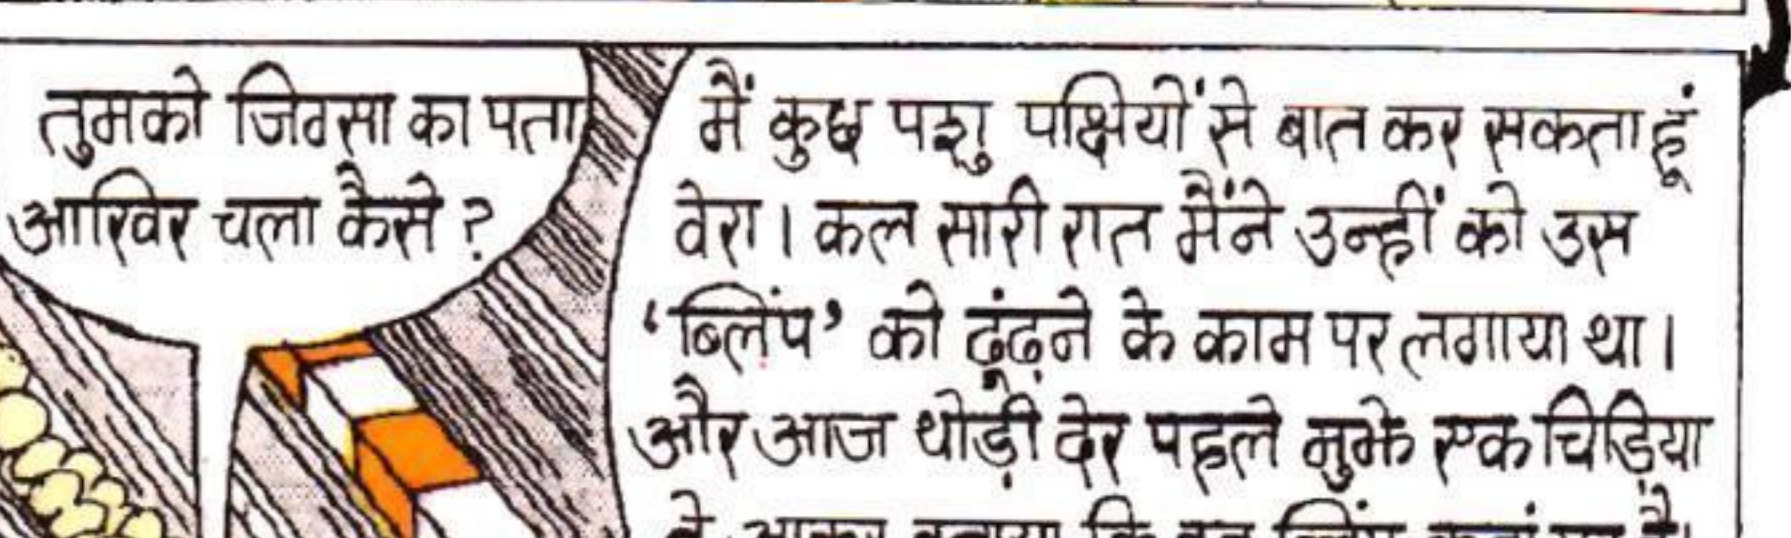 तुमको जिग्सा का पता
आखिर चला कैसे?
मैं कुछ पशु पक्षियों से बात कर सकता हूं
वेरा। कल सारी रात मैंने उन्हीं को उस
‘ब्लिंप’ को ढूंढ़ने के काम पर लगाया था।
और आज थोड़ी देर पहले मुझे एक चिड़िया
ने आकर बताया कि वह ब्लिंप कहां पर है।